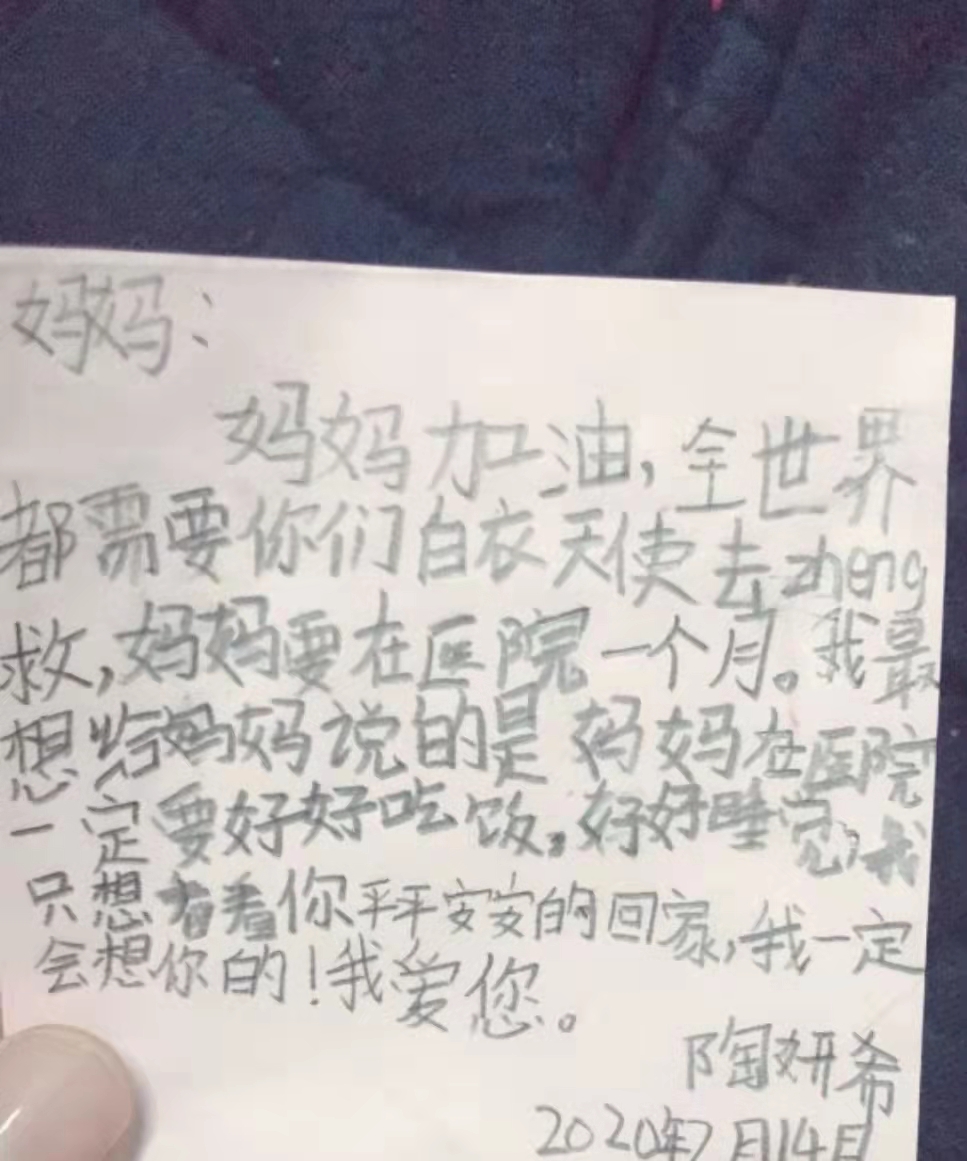 妈妈：
妈妈加油，全世界
都需要你们白衣天使去zheng
救，妈妈要在医院一个月。我最
想给妈妈说的是妈妈在医院
一定要好好吃饭，好好睡觉，我
只想看看你平平安安的回家，我一定
会想你的！我爱您。
陶妍希
2020年7月14日